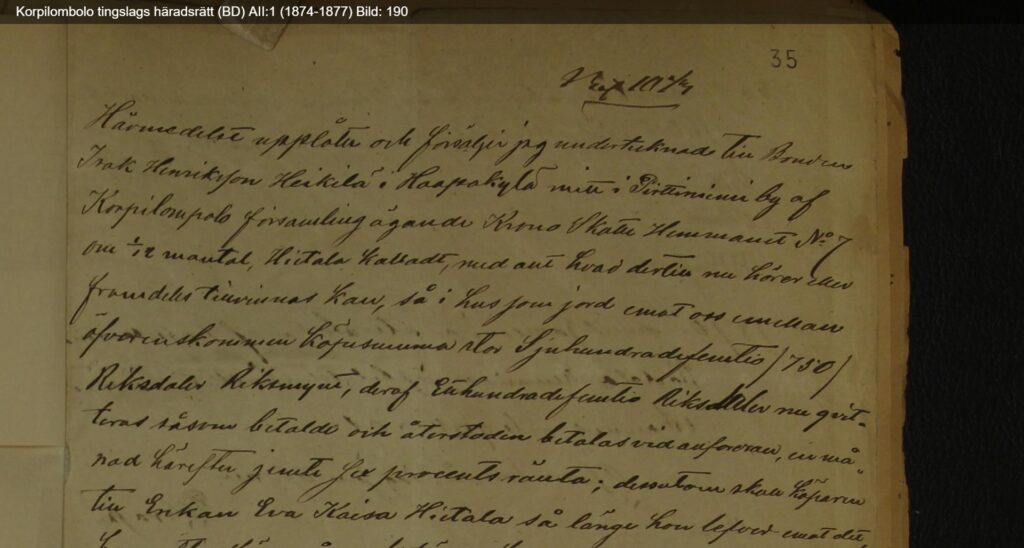 Korpilombolo tingslags häradsrätt (BD) AII:1 (1874-1877) Bild: 190
35
Härmedelst upplåter och försäljer jag undertecknad till Bonden
Isak Henriksson Heikilä i Haapakylä mitt i Pirttiniemi by af
Korpilompolo församling ägande Krono Skatte Hemmanet No 7
om 1/12 mantal, Hietala kalladt, med allt hvad dertill nu hörer eller
framdeles tillvinnas kan, så i hus som jord emot oss emellan
öfverenskommen köpesumma stor Sjuhundradefemtio /750/
Riksdaler Riksmynt, deraf Etthundradefemtio Riksdaler nu qvit-
teras såsom betalde och återstoden betalas vid anfordran, en må-
nad härefter, jemte sex procents ränta; dessutom skall köparen
till Enkan Eva Kaisa Hietala så länge hon lefver emot det